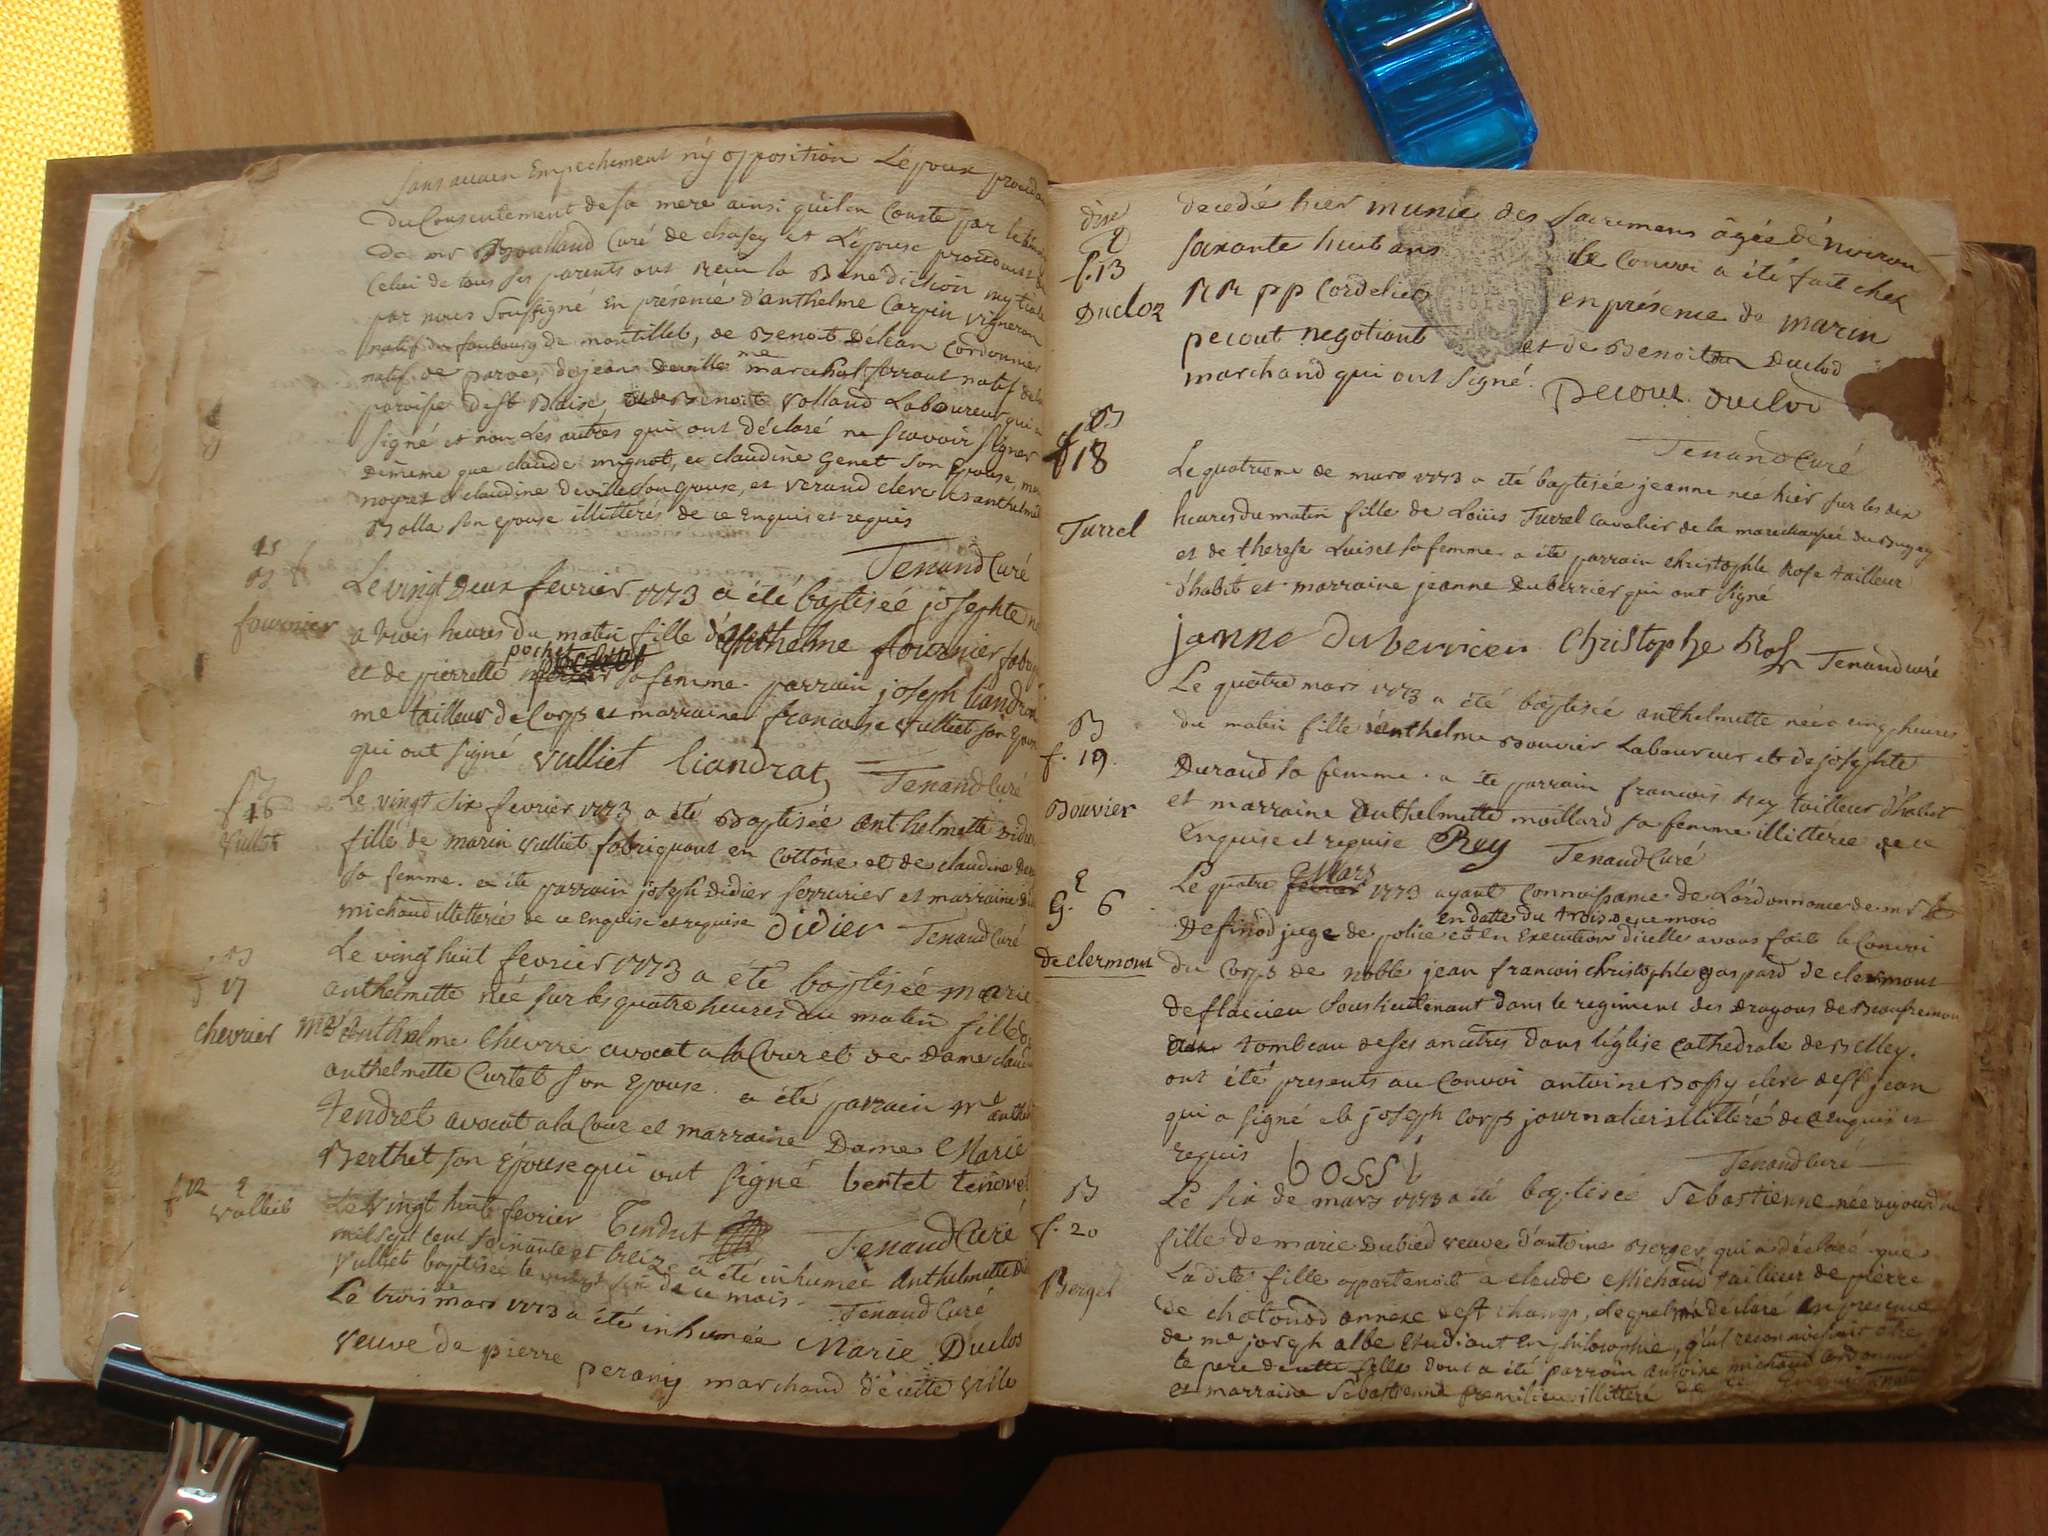 sans aucun Empechement n'y opposition L'epoux
du Consentement de sa mere ainsi quil en Conste par
de mr Curé de chasey et L'epouse procedant
Celui de tous ses parents ont Recu la Bénédiction nuptiale
par nous soussigné En présence d'anthelme Carpin Vigneron
natif du faubourg de montillet, de Benoit Déléan Cordonnier
natif de parve, de jean Deville me marechal ferrant natif de la
paroisse de st Blaise, et de Benoit Volland Laboureur qui a
signé et non Les autres qui ont déclaré ne scavoir signer
De meme que claude mignot, et claudine genet son Epouse,
noyret et claudine Deville son epouse, et Verand clerc et anthelmette
Bolla son epouse illitterés de ce Enquis et requis
Tenand Curé
15
B f
fournier
Le vingt Deux fevrier 1773 a été baptiseé josephte née
a trois heures du matin fille d'anthelme fournier
pochet
et de pierrette sa femme. parrain joseph liandrat
me tailleur de Corps et marraine francoise Vulliet son Epouse
qui ont signé Vulliet liandrat Tenand Curé
B
f 16
Vulliet
Le vingt Six fevrier 1773 a été Baptisée anthelmette
fille de marin Vulliet fabriquant en Cottone et de claudine
sa femme. a été parrain joseph didier serrurier et marraine
michaud illitterée de ce enquise et requise didier Tenand Curé
B
f 17
chevrier
Le vingt huit fevrier 1773 a été baptiseé Marie
anthelmette née sur les quatre heures du matin fille de
Me anthelme Chevrier avocat a la Cour et de Dame
anthelmette Curtet son Epouse. a été parrain Me
tendret avocat a la Cour et marraine Dame Marie
Berthet son Epouse qui ont signé bertet tendret
f. 12 E
Vulliet
Tendret Tenand Curé
Le Vingt huit fevrier
mil sept cent soixante et treize a été inhumée Anthelmette
Vulliet baptisée le vingt six de ce mois. Tenand Curé
Le trois de mars 1773 a été inhumée Marie Duclos
veuve de pierre perany marchand de cette ville
E
f. 13
Ducloz
decedée hier munie des sacremens âgée d'environ
soixante huit ans le Convoi a été fait chez
RR pp Cordeliers en présence de marin
pecout negotiant et de Benoit Duclos
marchand qui ont signé. Pecout Duclos
Tenand Curé
B
f 18
Turrel
Le quatrieme de mars 1773 a été baptisée jeanne née hier sur les dix
heures du matin fille de Loüis Turrel Cavalier de la marechaussée du Bugey
et de therese Luiset sa femme. a été parrain christophle Rose tailleur
d'habit et marraine jeanne Duberrier qui ont signé
janne duberrier Christophe Ros Tenand curé
B
f. 19.
Bouvier
Le quatre mars 1773 a été baptisée anthelmette née a cinq heures
du matin fille d'anthelme Bouvier Laboureur et de josephte
Durand sa femme. a été parrain francois Rey tailleur d'habit
et marraine Anthelmette maillard sa femme illitterée de ce
Enquise et requise Rey Tenand Curé
E
G. 6
declermont
Mars
Le quatre fevrier 1773 ayant connoissance de L'ordonnance de mr
en datte du trois de ce mois
Definod juge de police et en Execution d'icelle avons fait le Convoi
du Corps de noble jean francois christophle gaspard de clermont
deflacieu Souslieutenant dans le regiment des dragons de Beaufremont
au tombeau de ses ancetres dans l'église Cathedrale de Belley.
ont été presents au Convoi antoine Bossy clerc de st jean
qui a signé et joseph Corps journalier illitteré de ce enquis et
requis bossi Tenand Curé
B
f. 20
Berger
Le six de mars 1773 a été baptisée Sebastienne née aujourd'hui
fille de marie Dubied veuve d'antoine Berger qui a déclaré que
La dite fille appartenoit à claude Michaud tailleur de pierre
de chatonod annexe de st champ, Lequel m'a déclaré en presence
de me joseph albe etudiant en philosophie, qu'il reconnoissoit etre
le pere de cette fille dont a été parrain antoine michaud
et marraine Sebastienne premilieu illitteré de ce